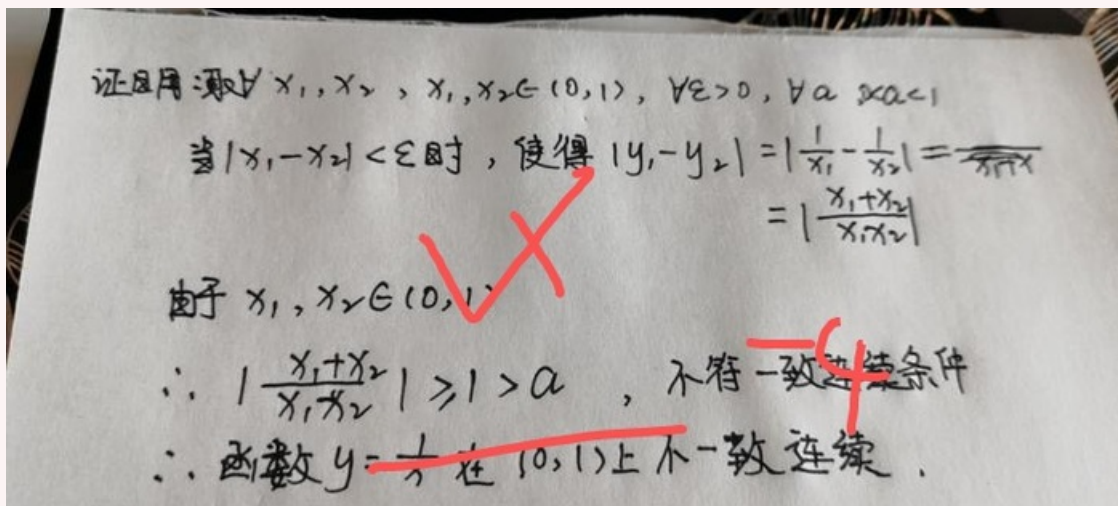 证明:取∀ x₁,x₂ , x₁,x₂∈(0,1), ∀ε>0, ∀a 0<a<1
当|x₁-x₂|<ε时,使得 |y₁-y₂| = |1/x₁ - 1/x₂| =
= |(x₁+x₂)/(x₁x₂)|
由于 x₁,x₂∈(0,1)
∴ |(x₁+x₂)/(x₁x₂)| ⩾1>a , 不符一致连续条件
-4
∴ 函数 y=1/x 在 (0,1)上不一致连续.